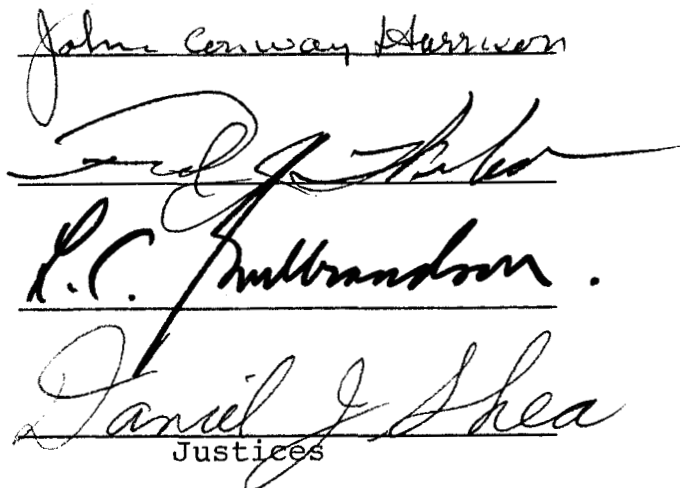 John Conway Harrison
Fred J. Weber
L.C. Gulbrandson.
Daniel J Shea
Justices